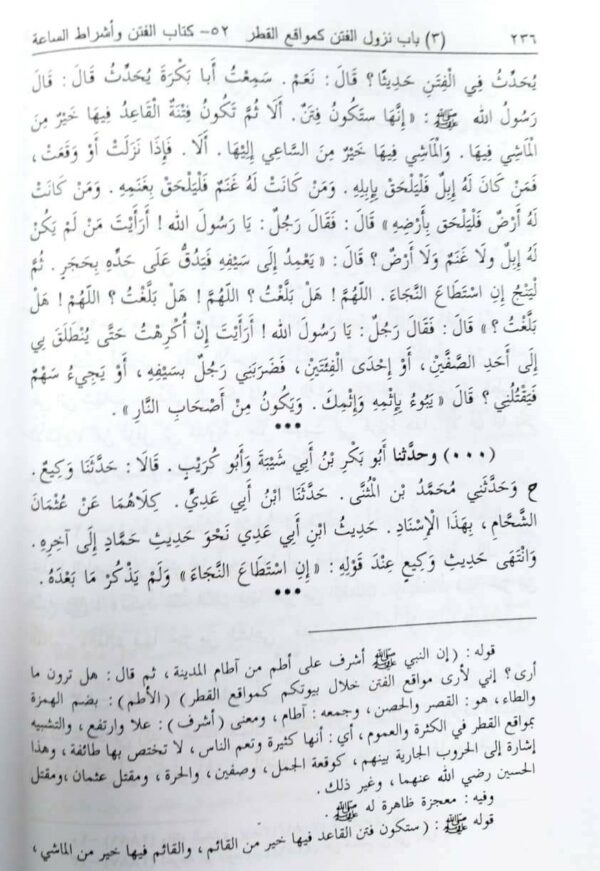 ٢٣٦ (٣) باب نزول الفتن كمواقع القطر ٥٢- كتاب الفتن وأشراط الساعة
يُحَدِّثُ فِي الْفِتَنِ حَدِيثًا؟ قَالَ: نَعَمْ. سَمِعْتُ أَبا بَكْرَةَ يُحَدِّثُ قَالَ: قَالَ
رَسُولُ الله ﷺ: «إِنَّهَا سَتَكُونُ فِتَنٌ. أَلَا ثُمَّ تَكُونُ فِتْنَةٌ الْقَاعِدُ فِيهَا خَيْرٌ مِنَ
الْمَاشِي فِيهَا. وَالْمَاشِي فِيهَا خَيْرٌ مِنَ السَّاعِي إِلَيْهَا. أَلَا. فَإِذَا نَزَلَتْ أَوْ وَقَعَتْ،
فَمَنْ كَانَ لَهُ إِبِلٌ فَلْيَلْحَقْ بِإِبِلِهِ. وَمَنْ كَانَتْ لَهُ غَنَمٌ فَلْيَلْحَقْ بِغَنَمِهِ. وَمَنْ كَانَتْ
لَهُ أَرْضٌ فَلْيَلْحَقْ بِأَرْضِهِ» قَالَ: فَقَالَ رَجُلٌ: يَا رَسُولَ الله! أَرَأَيْتَ مَنْ لَمْ يَكُنْ
لَهُ إِبِلٌ ولَا غَنَمٌ وَلَا أَرْضٌ؟ قَالَ: «يَعْمِدُ إِلَى سَيْفِهِ فَيَدُقُّ عَلَى حَدِّهِ بِحَجَرٍ. ثُمَّ
لْيَنْجُ إِنِ اسْتَطَاعَ النَّجَاءَ. اللَّهُمَّ! هَلْ بَلَّغْتُ؟ اللَّهُمَّ! هَلْ بَلَّغْتُ؟ اللَّهُمَّ! هَلْ
بَلَّغْتُ؟» قَالَ: فَقَالَ رَجُلٌ: يَا رَسُولَ الله! أَرَأَيْتَ إِنْ أُكْرِهْتُ حَتَّى يُنْطَلَقَ بِي
إِلَى أَحَدِ الصَّفَّيْنِ، أَوْ إِحْدَى الْفِئَتَيْنِ، فَضَرَبَنِي رَجُلٌ بِسَيْفِهِ، أَوْ يَجِيءُ سَهْمٌ
فَيَقْتُلُنِي؟ قَالَ «يَبُوءُ بِإِثْمِهِ وَإِثْمِكَ. وَيَكُونُ مِنْ أَصْحَابِ النَّارِ».
***
(...) وحدّثنا أَبُو بَكْرِ بْنُ أَبِي شَيْبَةَ وَأَبُو كُرَيْبٍ. قَالَا: حَدَّثَنَا وَكِيعٌ.
ح وَحَدَّثَنِي مُحَمَّدُ بْن الْمُثَنَّى. حَدَّثَنَا ابْنُ أَبِي عَدِيٍّ. كِلَاهُمَا عَنْ عُثْمَانَ
الشَّحَّامِ، بِهَذَا الْإِسْنَادِ. حَدِيثُ ابْنِ أَبِي عَدِي نَحْوَ حَدِيثِ حَمَّادٍ إِلَى آخِرِهِ.
وَانْتَهَى حَدِيثُ وَكِيعٍ عِنْدَ قَوْلِهِ: «إِنِ اسْتَطَاعَ النَّجَاءَ» وَلَمْ يَذْكُرْ مَا بَعْدَهُ.
***
قوله: (إن النبي ﷺ أشرف على أطم من آطام المدينة، ثم قال: هل ترون ما
أرى؟ إني لأرى مواقع الفتن خلال بيوتكم كمواقع القطر) (الأطم): بضم الهمزة
والطاء، هو: القصر والحصن، وجمعه: آطام، ومعنى (أشرف): علا وارتفع، والتشبيه
بمواقع القطر في الكثرة والعموم، أي: أنها كثيرة وتعم الناس، لا تختص بها طائفة، وهذا
إشارة إلى الحروب الجارية بينهم، كوقعة الجمل، وصفين، والحرة، ومقتل عثمان، ومقتل
الحسين رضي الله عنهما، وغير ذلك.
وفيه: معجزة ظاهرة له ﷺ.
قوله ﷺ: (ستكون فتن القاعد فيها خير من القائم، والقائم فيها خير من الماشي،